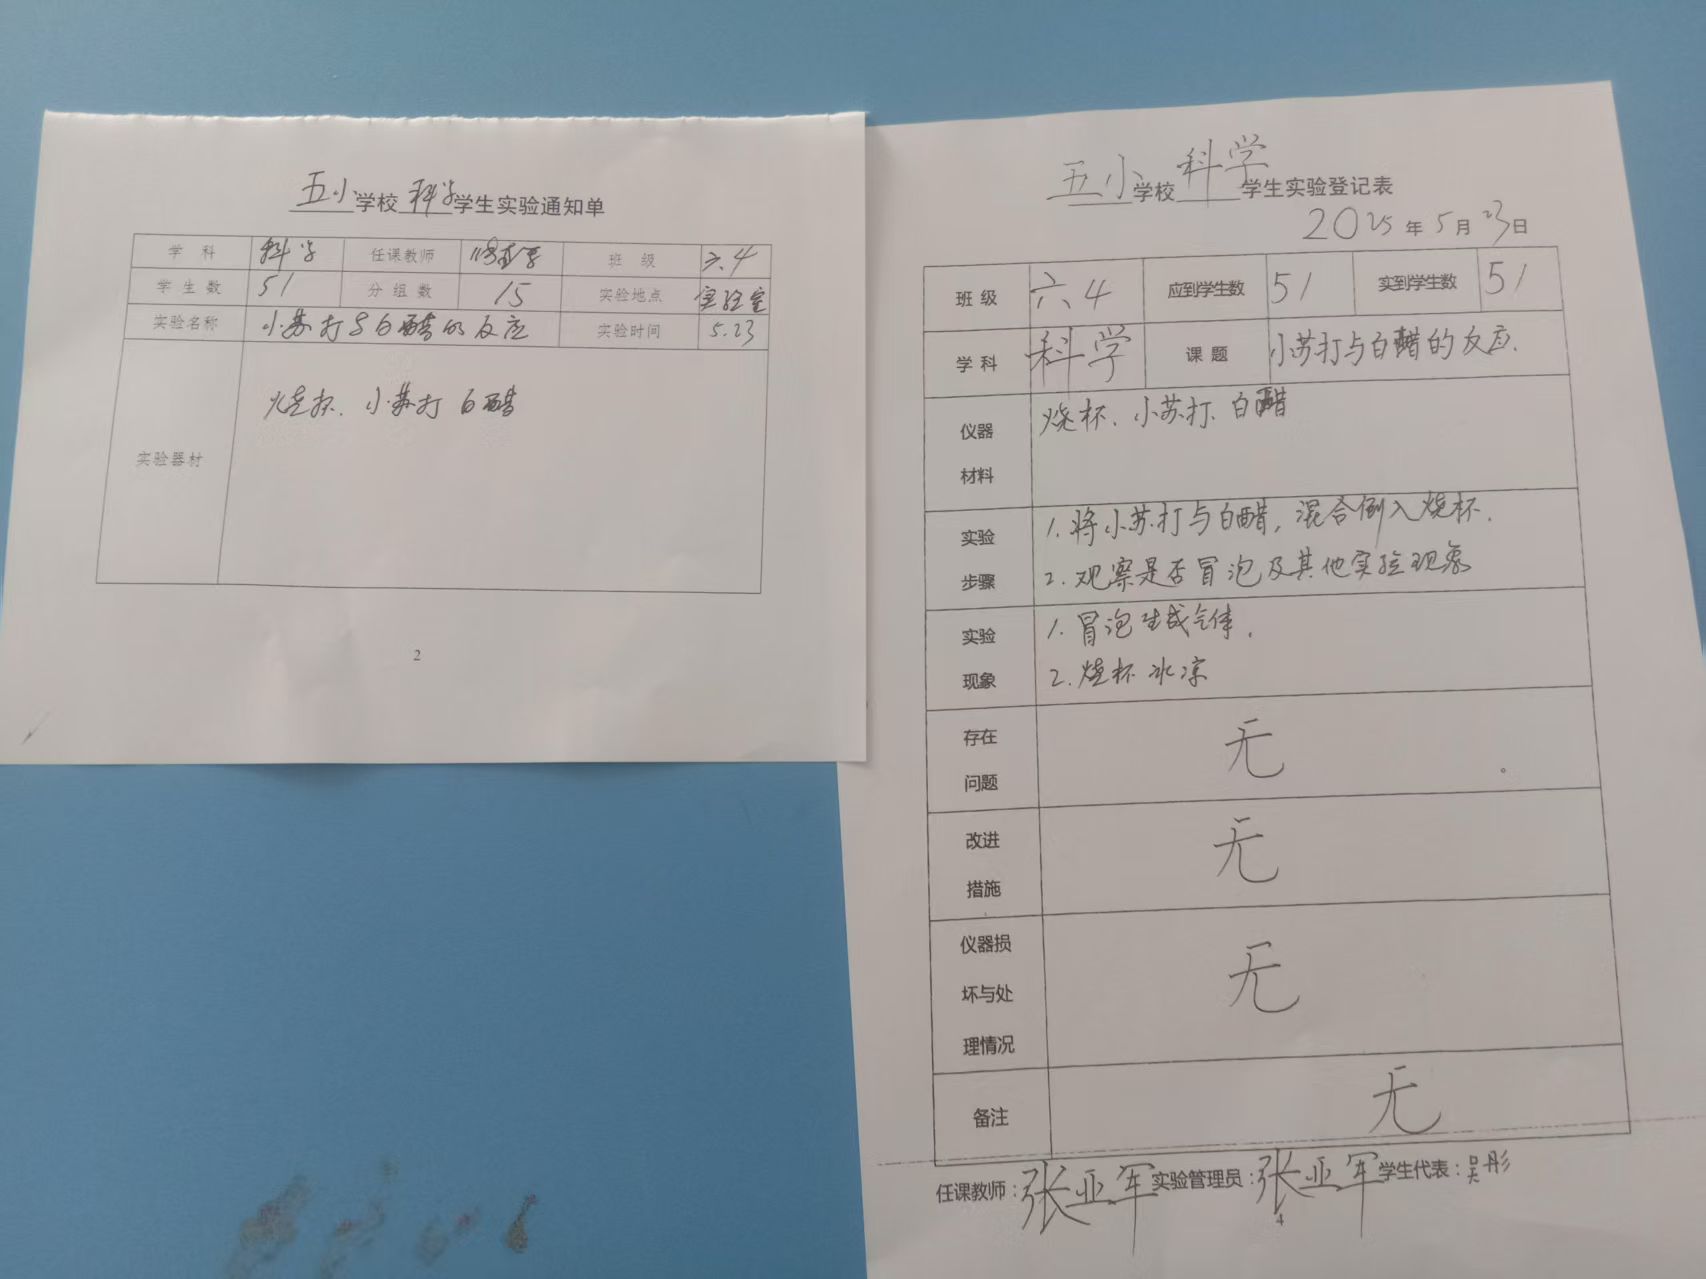 五小学校科学学生实验通知单
学科 科学 任课教师 班级 六.4
学生数 51 分组数 15 实验地点 实验室
实验名称 小苏打与白醋的反应 实验时间 5.23
实验器材 烧杯、小苏打 白醋
2
五小学校科学学生实验登记表
2025年5月23日
班级 六4 应到学生数 51 实到学生数 51
学科 科学 课题 小苏打与白醋的反应.
仪器 烧杯、小苏打、白醋
材料
实验 1.将小苏打与白醋,混合倒入烧杯.
步骤 2.观察是否冒泡及其他实验现象
实验 1.冒泡生成气体.
现象 2.烧杯冰凉
存在 无
问题
改进 无
措施
仪器损
坏与处 无
理情况
备注 无
任课教师:张亚军 实验管理员:张亚军 学生代表:吴彤
4